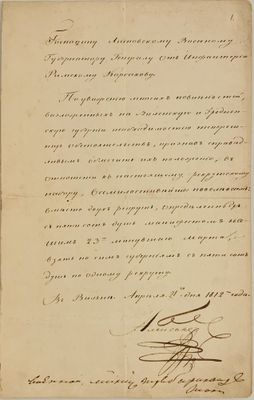 1.
Господину Литовскому Военному
Губернатору Генералу отъ Инфантеріи
Римскому Корсакову.
По уваженію многихъ повинностей,
возложенныхъ на Виленскую и Гроднен-
скую губерніи необходимостію
обстоятельствъ, признавъ справед-
ливымъ облегчить ихъ положеніе, въ
отношеніи къ настоящему рекрутскому
набору, Всемилостивѣйше повелѣваемъ:
вмѣсто двухъ рекрутъ, опредѣленныхъ
съ пяти сотъ душъ манифестомъ на-
шимъ 23го минувшаго Марта,
взять по симъ губерніямъ съ пяти сотъ
душъ по одному рекруту.
Въ Вильнѣ. Апрѣля 21го дня 1812 года.
Александръ